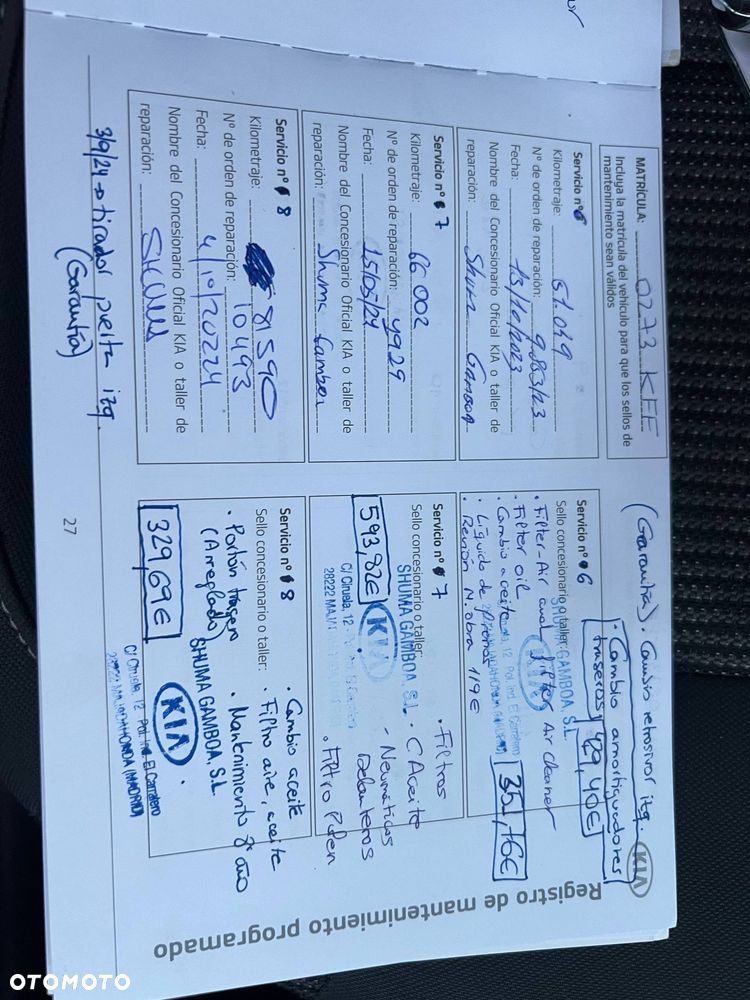 MATRÍCULA: 0273 KFE
Incluya la matrícula del vehículo para que los sellos de
mantenimiento sean válidos
Servicio nº 6
Kilometraje: 51.049
Nº de orden de reparación: 9.883/23
Fecha: 13/10/2023
Nombre del Concesionario Oficial KIA o taller de
reparación: Shuma Gamboa
Servicio nº 7
Kilometraje: 66 002
Nº de orden de reparación: 4929
Fecha: 15/05/24
Nombre del Concesionario Oficial KIA o taller de
reparación: Shuma Gamboa
Servicio nº 8
Kilometraje: 81 590
Nº de orden de reparación: 10493
Fecha: 4/10/20224
Nombre del Concesionario Oficial KIA o taller de
reparación:
3/9/24 → tirador puerta izq.
(Garantía)
27
(Garantía). Cambio retrovisor izq.
KIA
· Cambio amortiguadores
traseros 89,40€
Servicio nº 6
Sello concesionario o taller:
SHUMA GAMBOA, S.L.
KIA
· Filter-Air
· Filter Air cleaner
· Filter oil
· Cambio aceite
· Líquido de frenos
· Revisión M.obra 119€
Servicio nº 7
Sello concesionario o taller:
SHUMA GAMBOA, S.L.
KIA
C/ Ciruela, 12
593,82€
· Filtros
· C Aceite
- Neumáticos
Delanteros
· Filtro Polen
Servicio nº 8
Sello concesionario o taller:
· Cambio aceite
· Filtro aire, aceite
· Mantenimiento 8º año
· Portón trasero
(Arreglado)
329,69€
KIA
SHUMA GAMBOA, S.L.
C/ Ciruela, 12 Pol. Ind. El Carralero
28222 MAJADAHONDA (MADRID)
Registro de mantenimiento programado
OTOMOTO